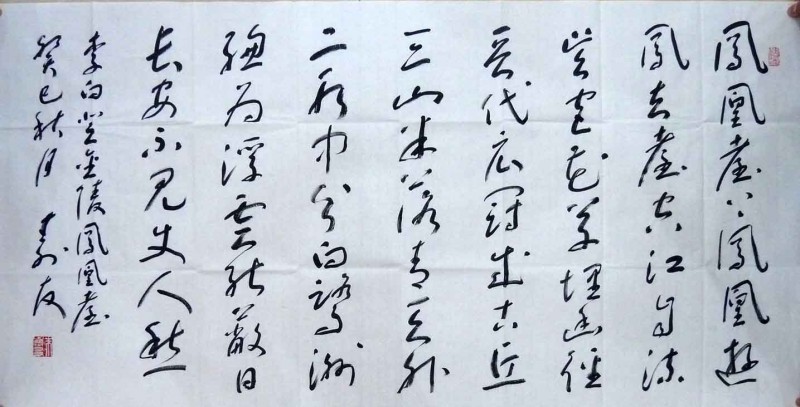 鳳凰臺上鳳凰遊
鳳去臺空江自流
吳宮花草埋幽徑
晉代衣冠成古丘
三山半落青天外
二水中分白鷺洲
總為浮雲能蔽日
長安不見使人愁
李白登金陵鳳凰臺
癸巳秋月 友